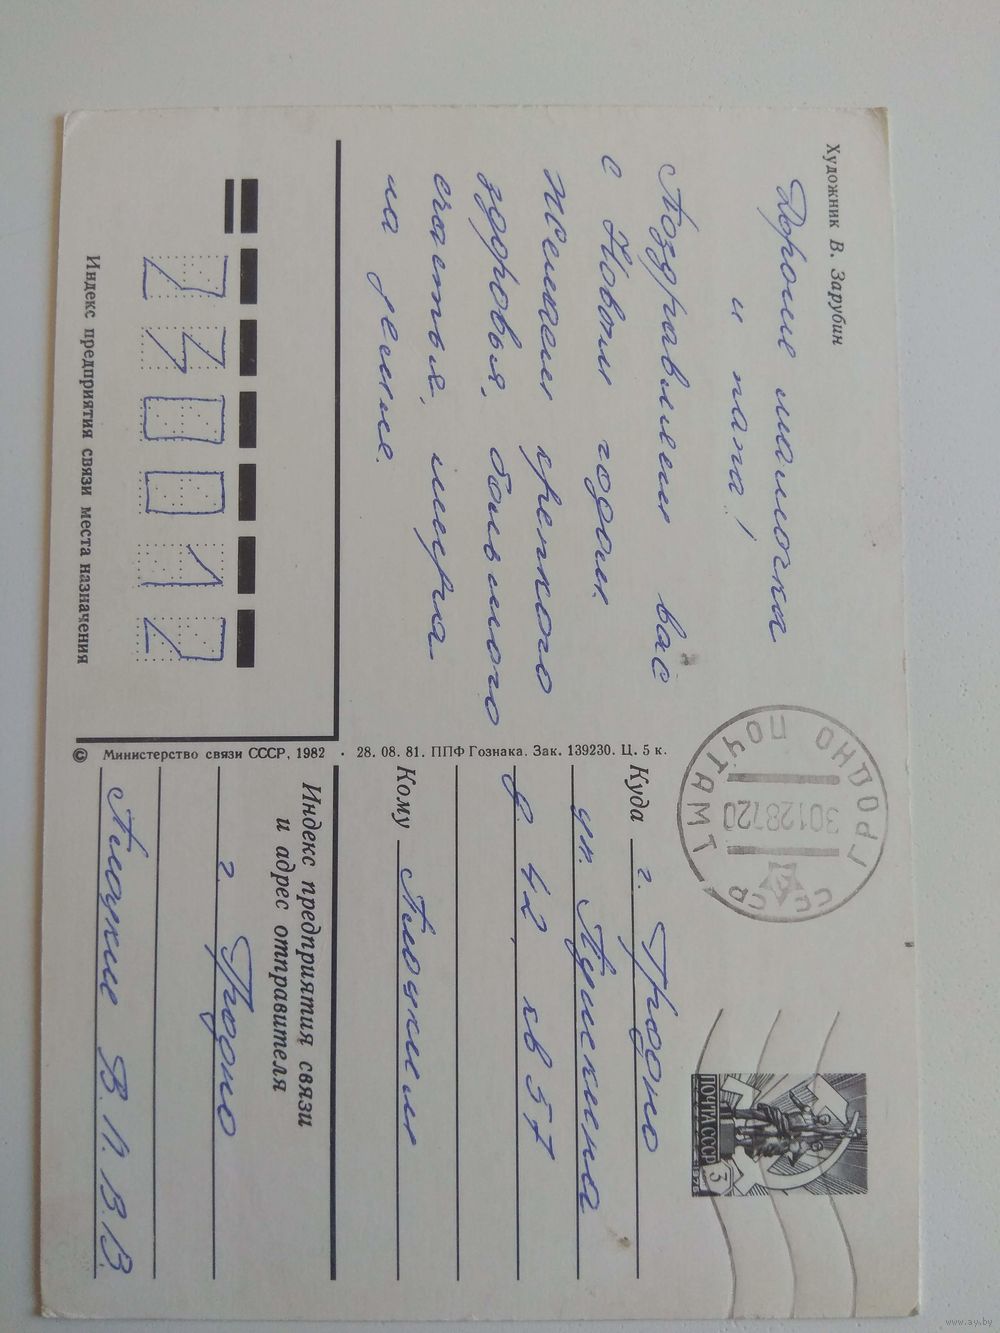 Художник В. Зарубин
Дорогие мамочка
и папа!
Поздравляем вас
с Новым годом.
Желаем крепкого
здоровья, большого
счастья, мира
на земле.
230012
Индекс предприятия связи места назначения
© Министерство связи СССР, 1982 · 28. 08. 81. ППФ Гознака. Зак. 139230. Ц. 5 к.
ГРОДНО ПОЧТАМТ
СССР
ПОЧТА СССР
3
Куда г. Гродно
ул. Пушкина
д. 42, кв 57
Кому
Индекс предприятия связи
и адрес отправителя
г. Гродно
В. П. В. В.
www.ay.by